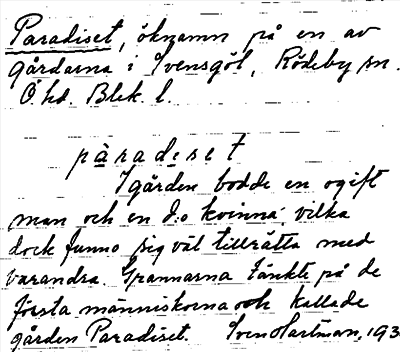 Paradiset, öknamn på en av
gårdarna i Svensgöl, Rödeby sn.
Ö. hd. Blek. l.
paradiset
I gården bodde en ogift
man och en d:o kvinna, vilka
dock funno sig väl tillrätta med
varandra. Grannarna tänkte på de
första människorna och kallade
gården Paradiset. Sven Hartman, 193